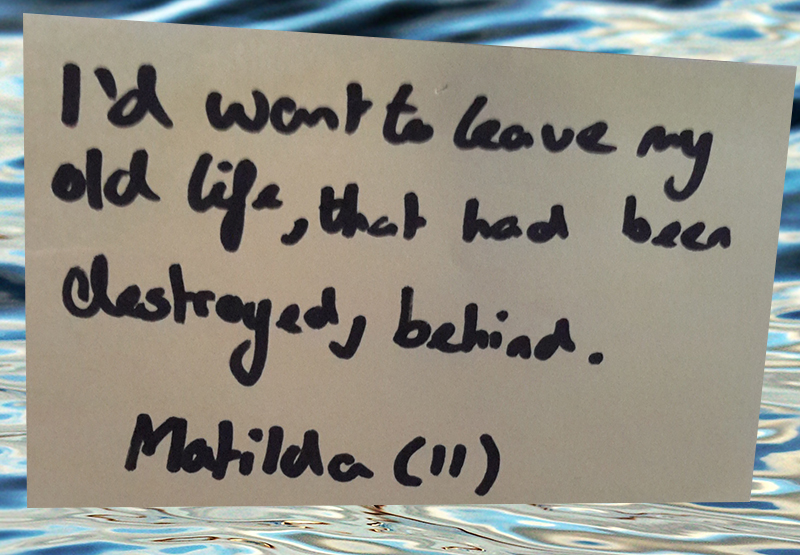 I'd want to leave my
old life, that had been
destroyed, behind.
Matilda (11)